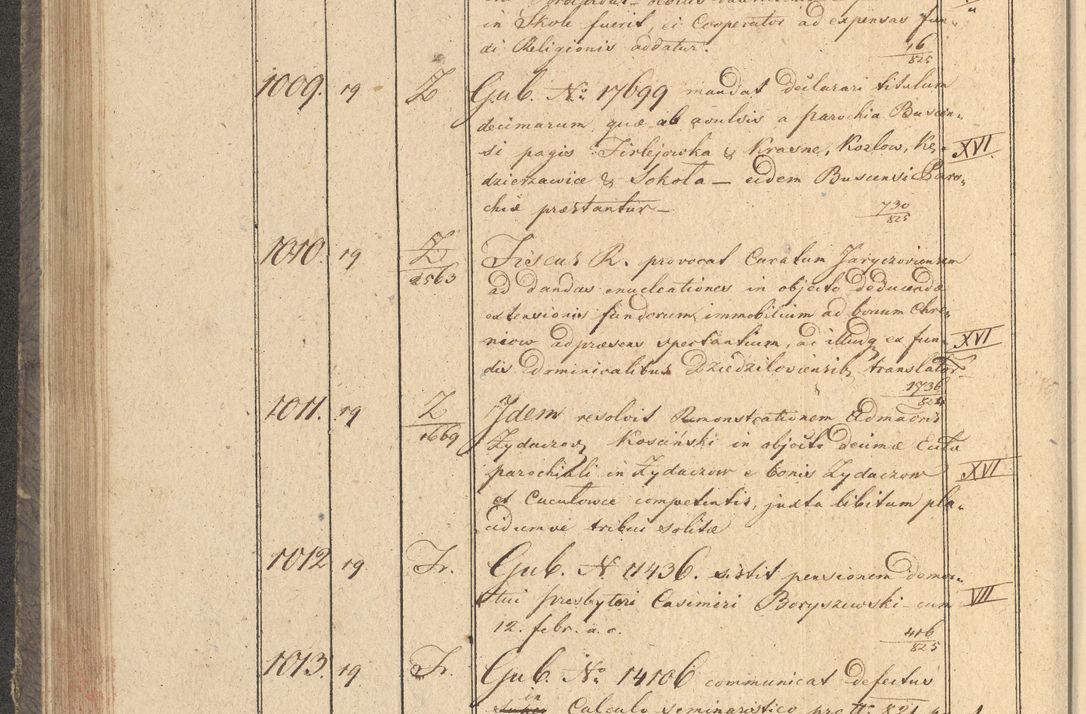 in Skole fuerit, ei Cooperator ad expensas fun-
di Religionis addatur. 16/825
1009. 19 Z Gub. No. 17699 mandat declarari titulum
decimarum, quæ ab avulsis a parochia Buscen-
si pagis Firlejowka & Krasne, Kozlow, Kę- XVI.
dzierzawice & Sokoła — eidem Buscensi Paro-
chiæ præstantur — 730/825
1010. 19 Z/2563 Fiscus R. provocat Curatum Jaryczoviensem
ad dandas enucleationes in objecto deducendæ
extensionis fundorum immobilium ad bonum Chre-
niow adpræsens spectantium, ac illudq ex fun- XVI
dis Dominicalibus Dziedziloviensib, translator. 1736/824
1011. 19 Z/1669 Idem resolvit Remonstrationem Admadri
Zydaczov, Koscinski in objecto decimæ Cultu
parochiali in Zydaczow e bonis Zydaczow XVI
et Cucułowce competentis, juxta libitum pla-
cidumve tribui solitæ
1012 19 Fr. Gub. N. 11436. sistit pensionem demor-
tui presbyteri Casimiri Boryszewski cum VII
12. febr. a. c. 416/825
1013. 19 Fr. Gub. No. 14106 communicat defectus
in Calculo seminaristico pro